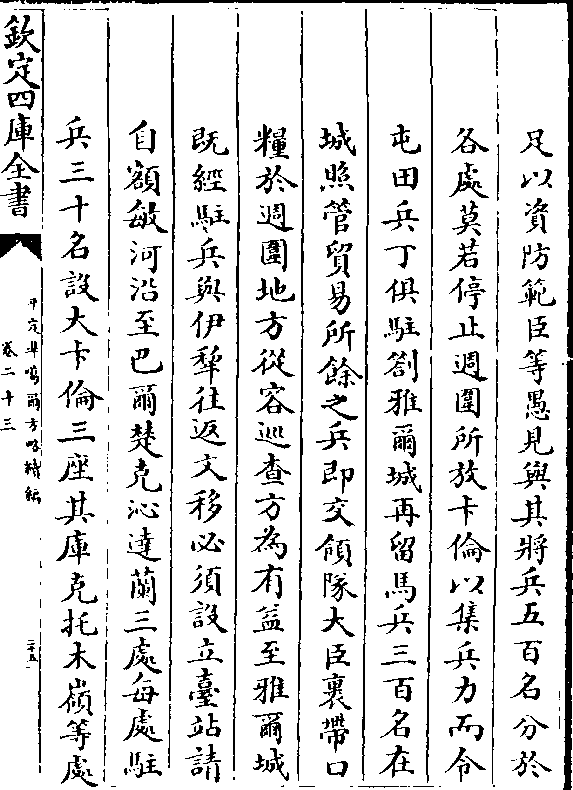 足以資防範臣等愚見與其將兵五百名分於
各處莫若停止週圍所放卡倫以集兵力而令
屯田兵丁俱駐劄雅爾城再留馬兵三百名在
城照管貿易所餘之兵即交領隊大臣裹帶口
糧於週圍地方從容巡查方為有益至雅爾城
既經駐兵與伊犂往返文移必須設立臺站請
自額敏河沿至巴爾楚克沁達蘭三處每處駐
兵三十名設大卡倫三座其庫克托木嶺等處
欽定四庫全書
平定凖噶爾方略續編
卷二十三
二十五